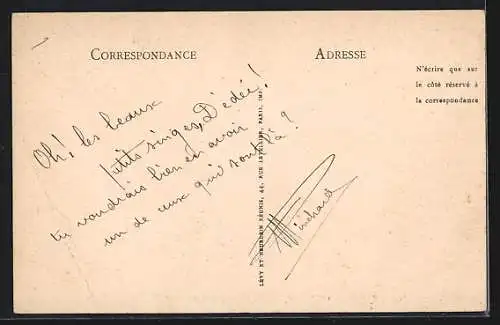 CORRESPONDANCE
ADRESSE
N'écrire que sur
le côté réservé à
la correspondance
Oh! les beaux
petits singes, Dédée!
tu voudrais bien en avoir
un de ceux qui sont là?
LÉVY ET NEURDEIN RÉUNIS, 44, RUE LETELLIER, PARIS